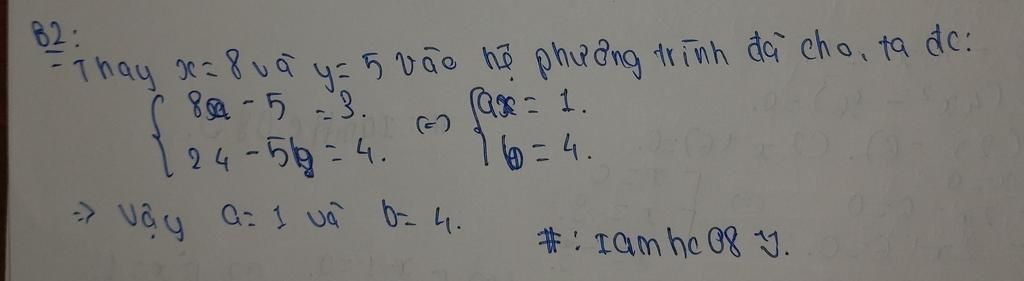 B2:
- Thay x = 8 và y = 5 vào hệ phương trình đã cho, ta đc:
{ 8a - 5 = 3. <=> { a = 1.
24 - 5b = 4. b = 4.
=> Vậy a = 1 và b = 4.
# : Iamhc08